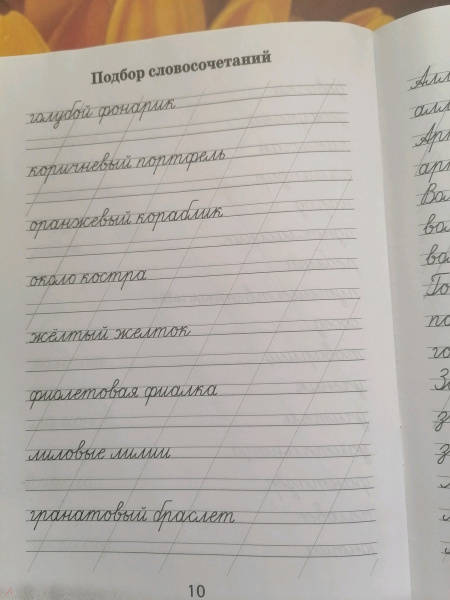 Подбор словосочетаний
голубой фонарик
коричневый портфель
оранжевый кораблик
около костра
жёлтый желток
фиолетовая фиалка
лиловые лилии
гранатовый браслет
10